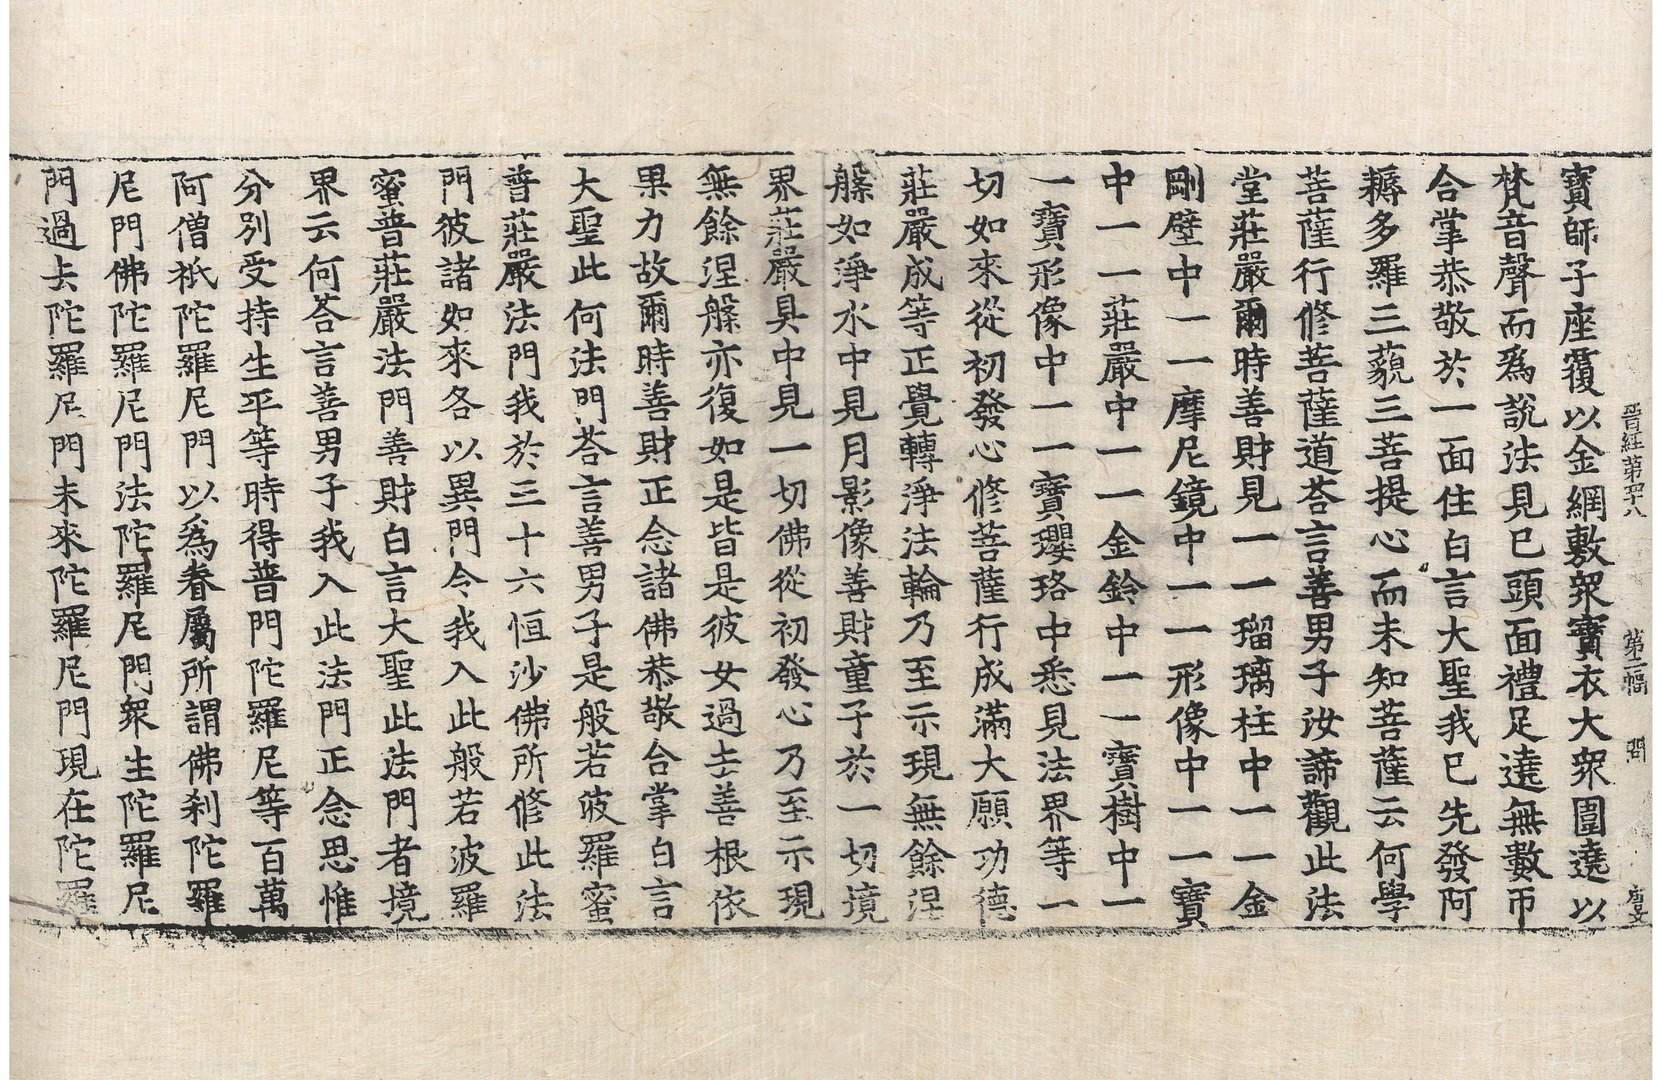 晋經第四十八 第二幅 問 唐文
寶師子座覆以金網敷衆寶衣大衆圍遶以
梵音聲而爲說法見已頭面禮足遶無數帀
合掌恭敬於一面住白言大聖我已先發阿
耨多羅三藐三菩提心而未知菩薩云何學
菩薩行修菩薩道荅言善男子汝諦觀此法
堂莊嚴爾時善財見一一瑠璃柱中一一金
剛壁中一一摩尼鏡中一一形像中一一寶
中一一莊嚴中一一金鈴中一一寶樹中一
一寶形像中一一寶瓔珞中悉見法界等一
切如來從初發心修菩薩行成滿大願功德
莊嚴成等正覺轉淨法輪乃至示現無餘涅
槃如淨水中見月影像善財童子於一切境
界莊嚴具中見一切佛從初發心乃至示現
無餘涅槃亦復如是皆是彼女過去善根依
果力故爾時善財正念諸佛恭敬合掌白言
大聖此何法門荅言善男子是般若波羅蜜
普莊嚴法門我於三十六恒沙佛所修此法
門彼諸如來各以異門令我入此般若波羅
蜜普莊嚴法門善財白言大聖此法門者境
界云何荅言善男子我入此法門正念思惟
分別受持生平等時得普門陀羅尼等百萬
阿僧祇陀羅尼門以爲眷屬所謂佛刹陀羅
尼門佛陀羅尼門法陀羅尼門衆生陀羅尼
門過去陀羅尼門未來陀羅尼門現在陀羅